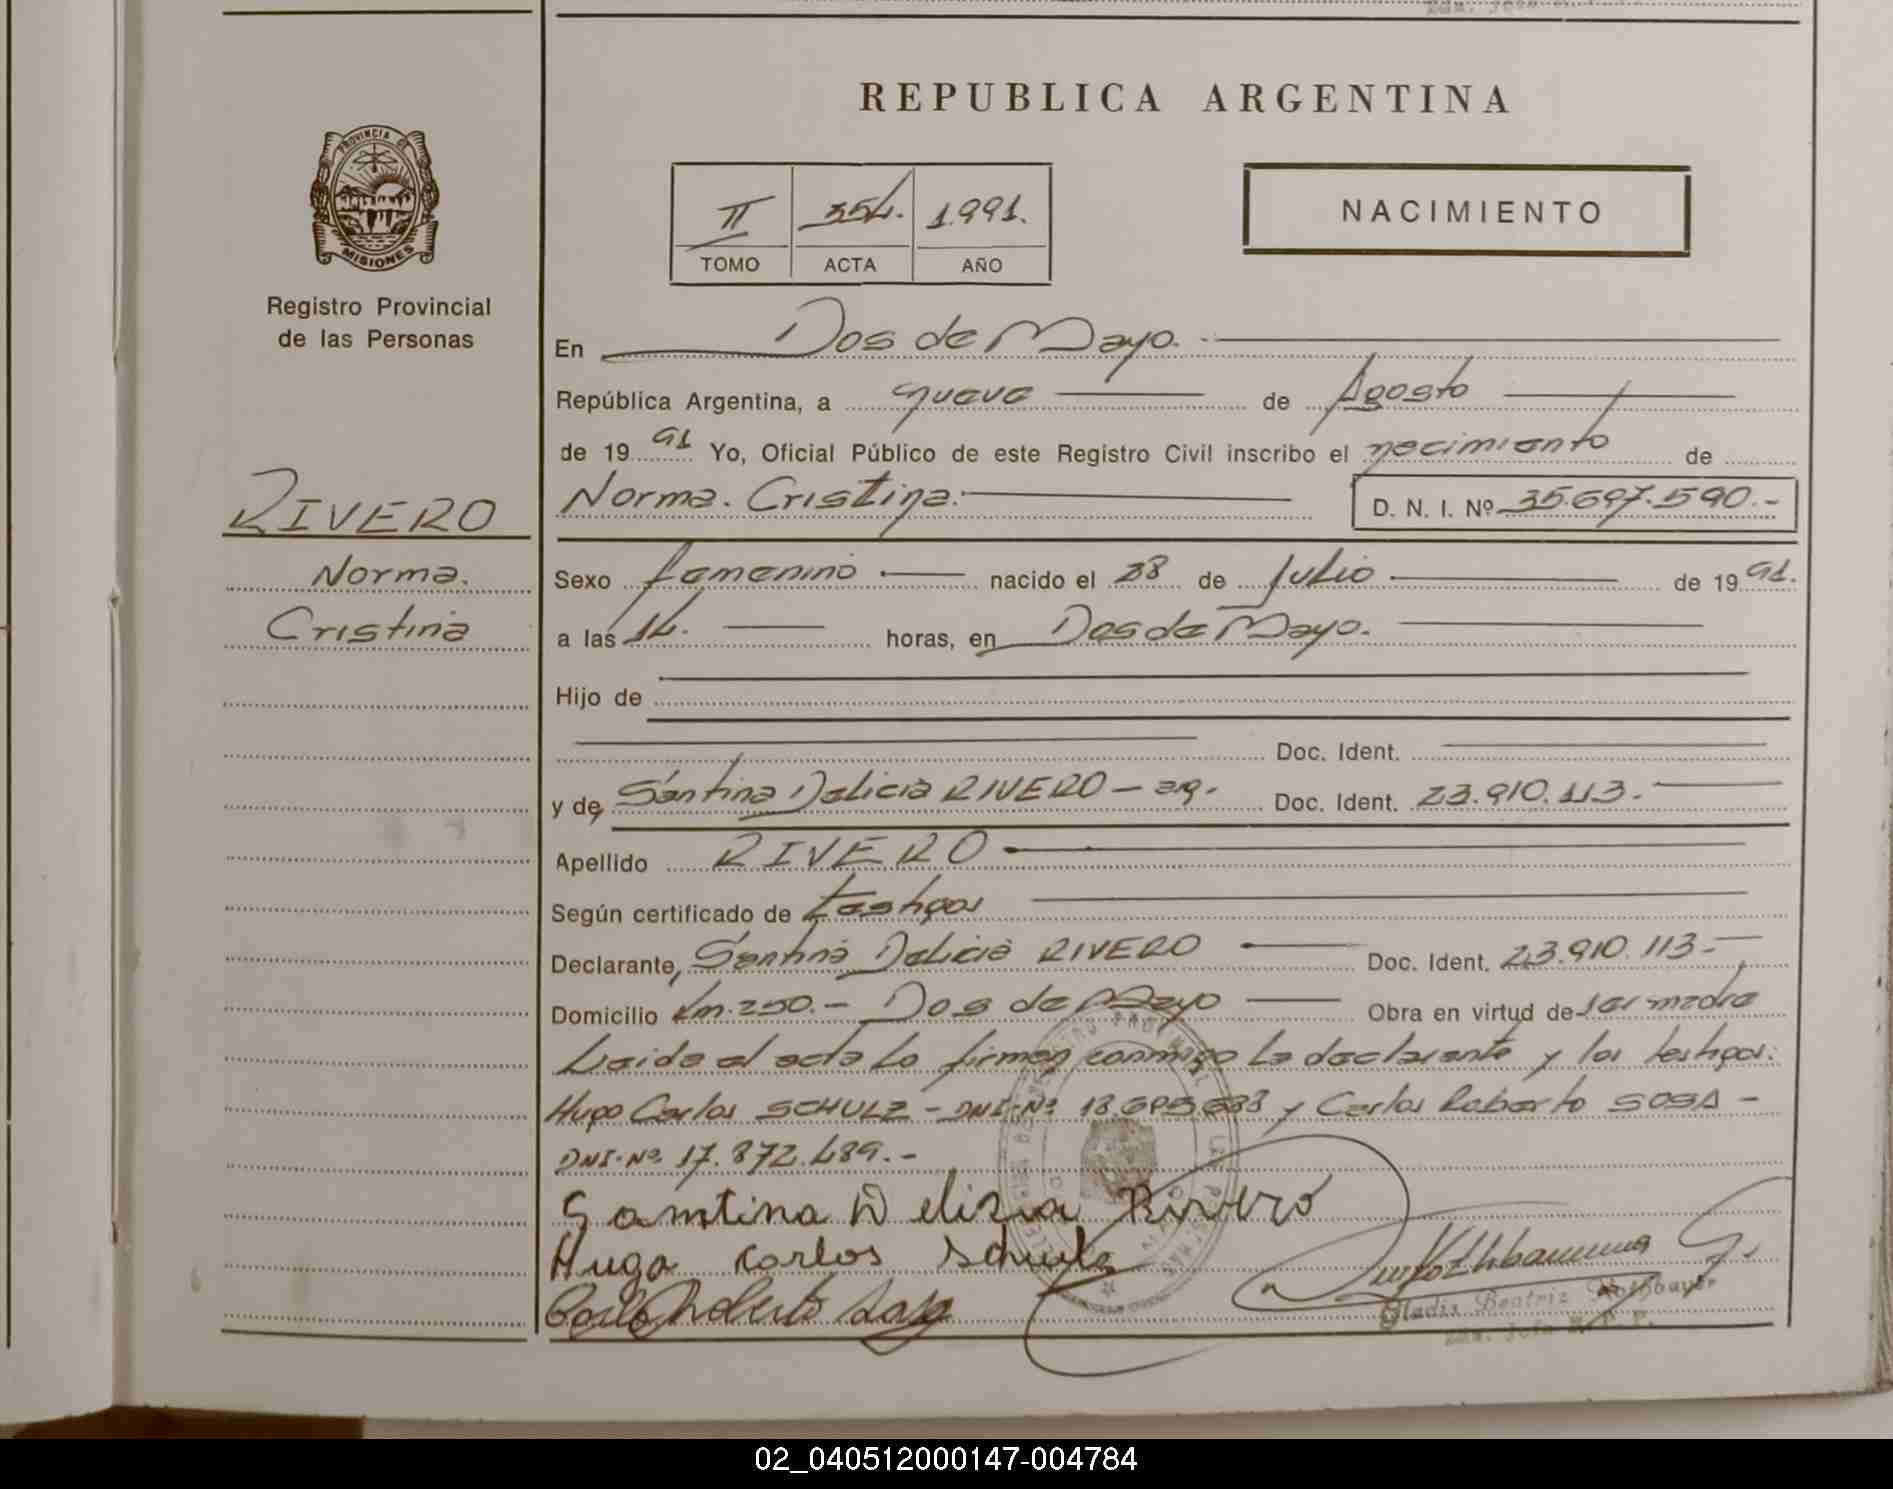 REPUBLICA ARGENTINA
PROVINCIA DE
MISIONES
Registro Provincial
de las Personas
II 354. 1.991.
TOMO ACTA AÑO
NACIMIENTO
En Dos de Mayo.
República Argentina, a nueve de Agosto
de 19 91 Yo, Oficial Público de este Registro Civil inscribo el nacimiento de
RIVERO
Norma. Cristina. D. N. I. Nº 35.697.590.-
Norma.
Sexo femenino nacido el 28 de Julio de 19 91.
Cristina
a las 14. horas, en Dos de Mayo.
Hijo de
Doc. Ident.
y de Santina Delicia RIVERO - arg. Doc. Ident. 23.910.113.-
Apellido RIVERO
Según certificado de testigos
Declarante, Santina Delicia RIVERO Doc. Ident. 23.910.113-
Domicilio Km. 250.- Dos de Mayo Obra en virtud de ser madre
Leida el acta lo firman conmigo la declarante y los testigos:
Hugo Carlos SCHULZ - DNI-Nº y Carlos Roberto SOSA -
DNI-Nº 17.872.489.-
Santina Delizia Rivero
Hugo Carlos Schulz
Carlos Roberto Sosa
Gladis Beatriz
02_040512000147-004784